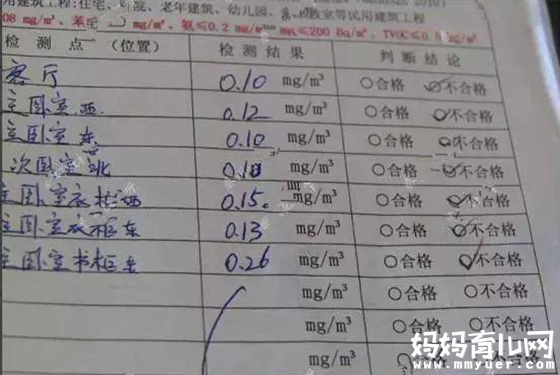 用建筑工程:住宅、医院、老年建筑、幼儿园、教室等民用建筑工程
08 mg/m³、苯 mg/m³、氨≤0.2 mg/m³ ≤200 Bq/m³、TVOC≤0.5 mg/m³
检测点(位置) 检测结果 判断结论
客厅 0.10 mg/m³ ○合格 ○不合格
主卧室西 0.12 mg/m³ ○合格 ○不合格
主卧室东 0.10 mg/m³ ○合格 ○不合格
次卧室北 mg/m³ ○合格 ○不合格
主卧室衣柜西 0.15 mg/m³ ○合格 ○不合格
主卧室衣柜东 0.13 mg/m³ ○合格 ○不合格
主卧室书柜东 0.26 mg/m³ ○合格 ○不合格
mg/m³ ○合格 ○不合格
mg/m³ ○合格 ○不合格
mg/m³
妈妈育儿网
www.mmyuer.com